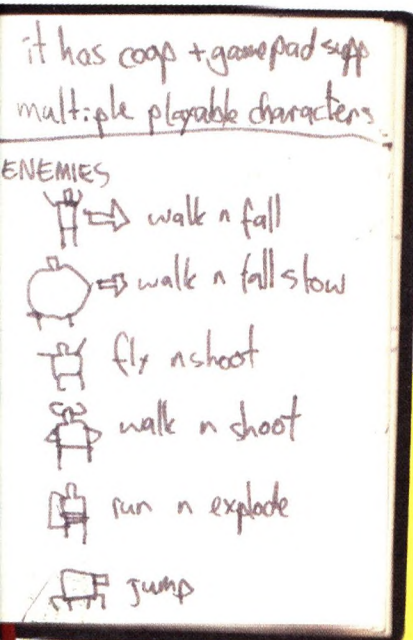 it has coop + gamepad supp
multiple playable characters
ENEMIES
walk n fall
walk n fall slow
fly n shoot
walk n shoot
run n explode
jump